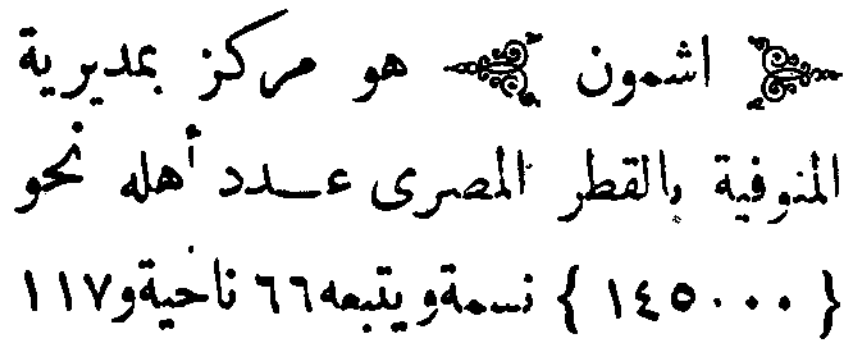 اشمون هو مركز بمديرية
المنوفية بالقطر المصرى عــدد أهله نحو
{ ١٤٥٠٠٠ } نسمة ويتبعه ٦٦ ناحية و١١٧